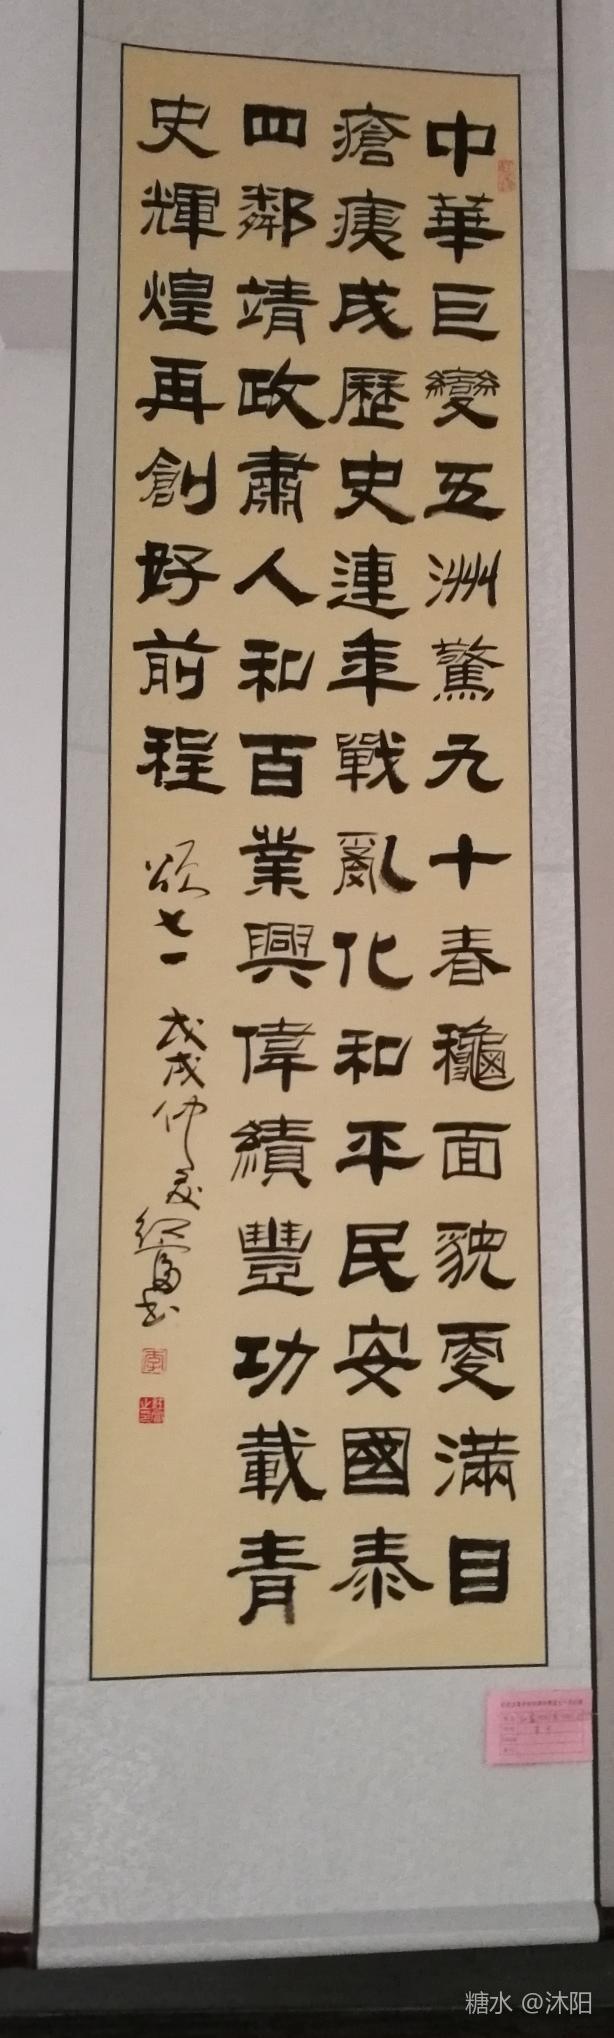 中華巨變五洲驚九十春龝面貌更滿目
瘡痍成歷史連年戰亂化和平民安國泰
四鄰靖政肅人和百業興偉績豐功載青
史輝煌再創好前程
頌七一 戊戌仲夏
糖水 @沐阳